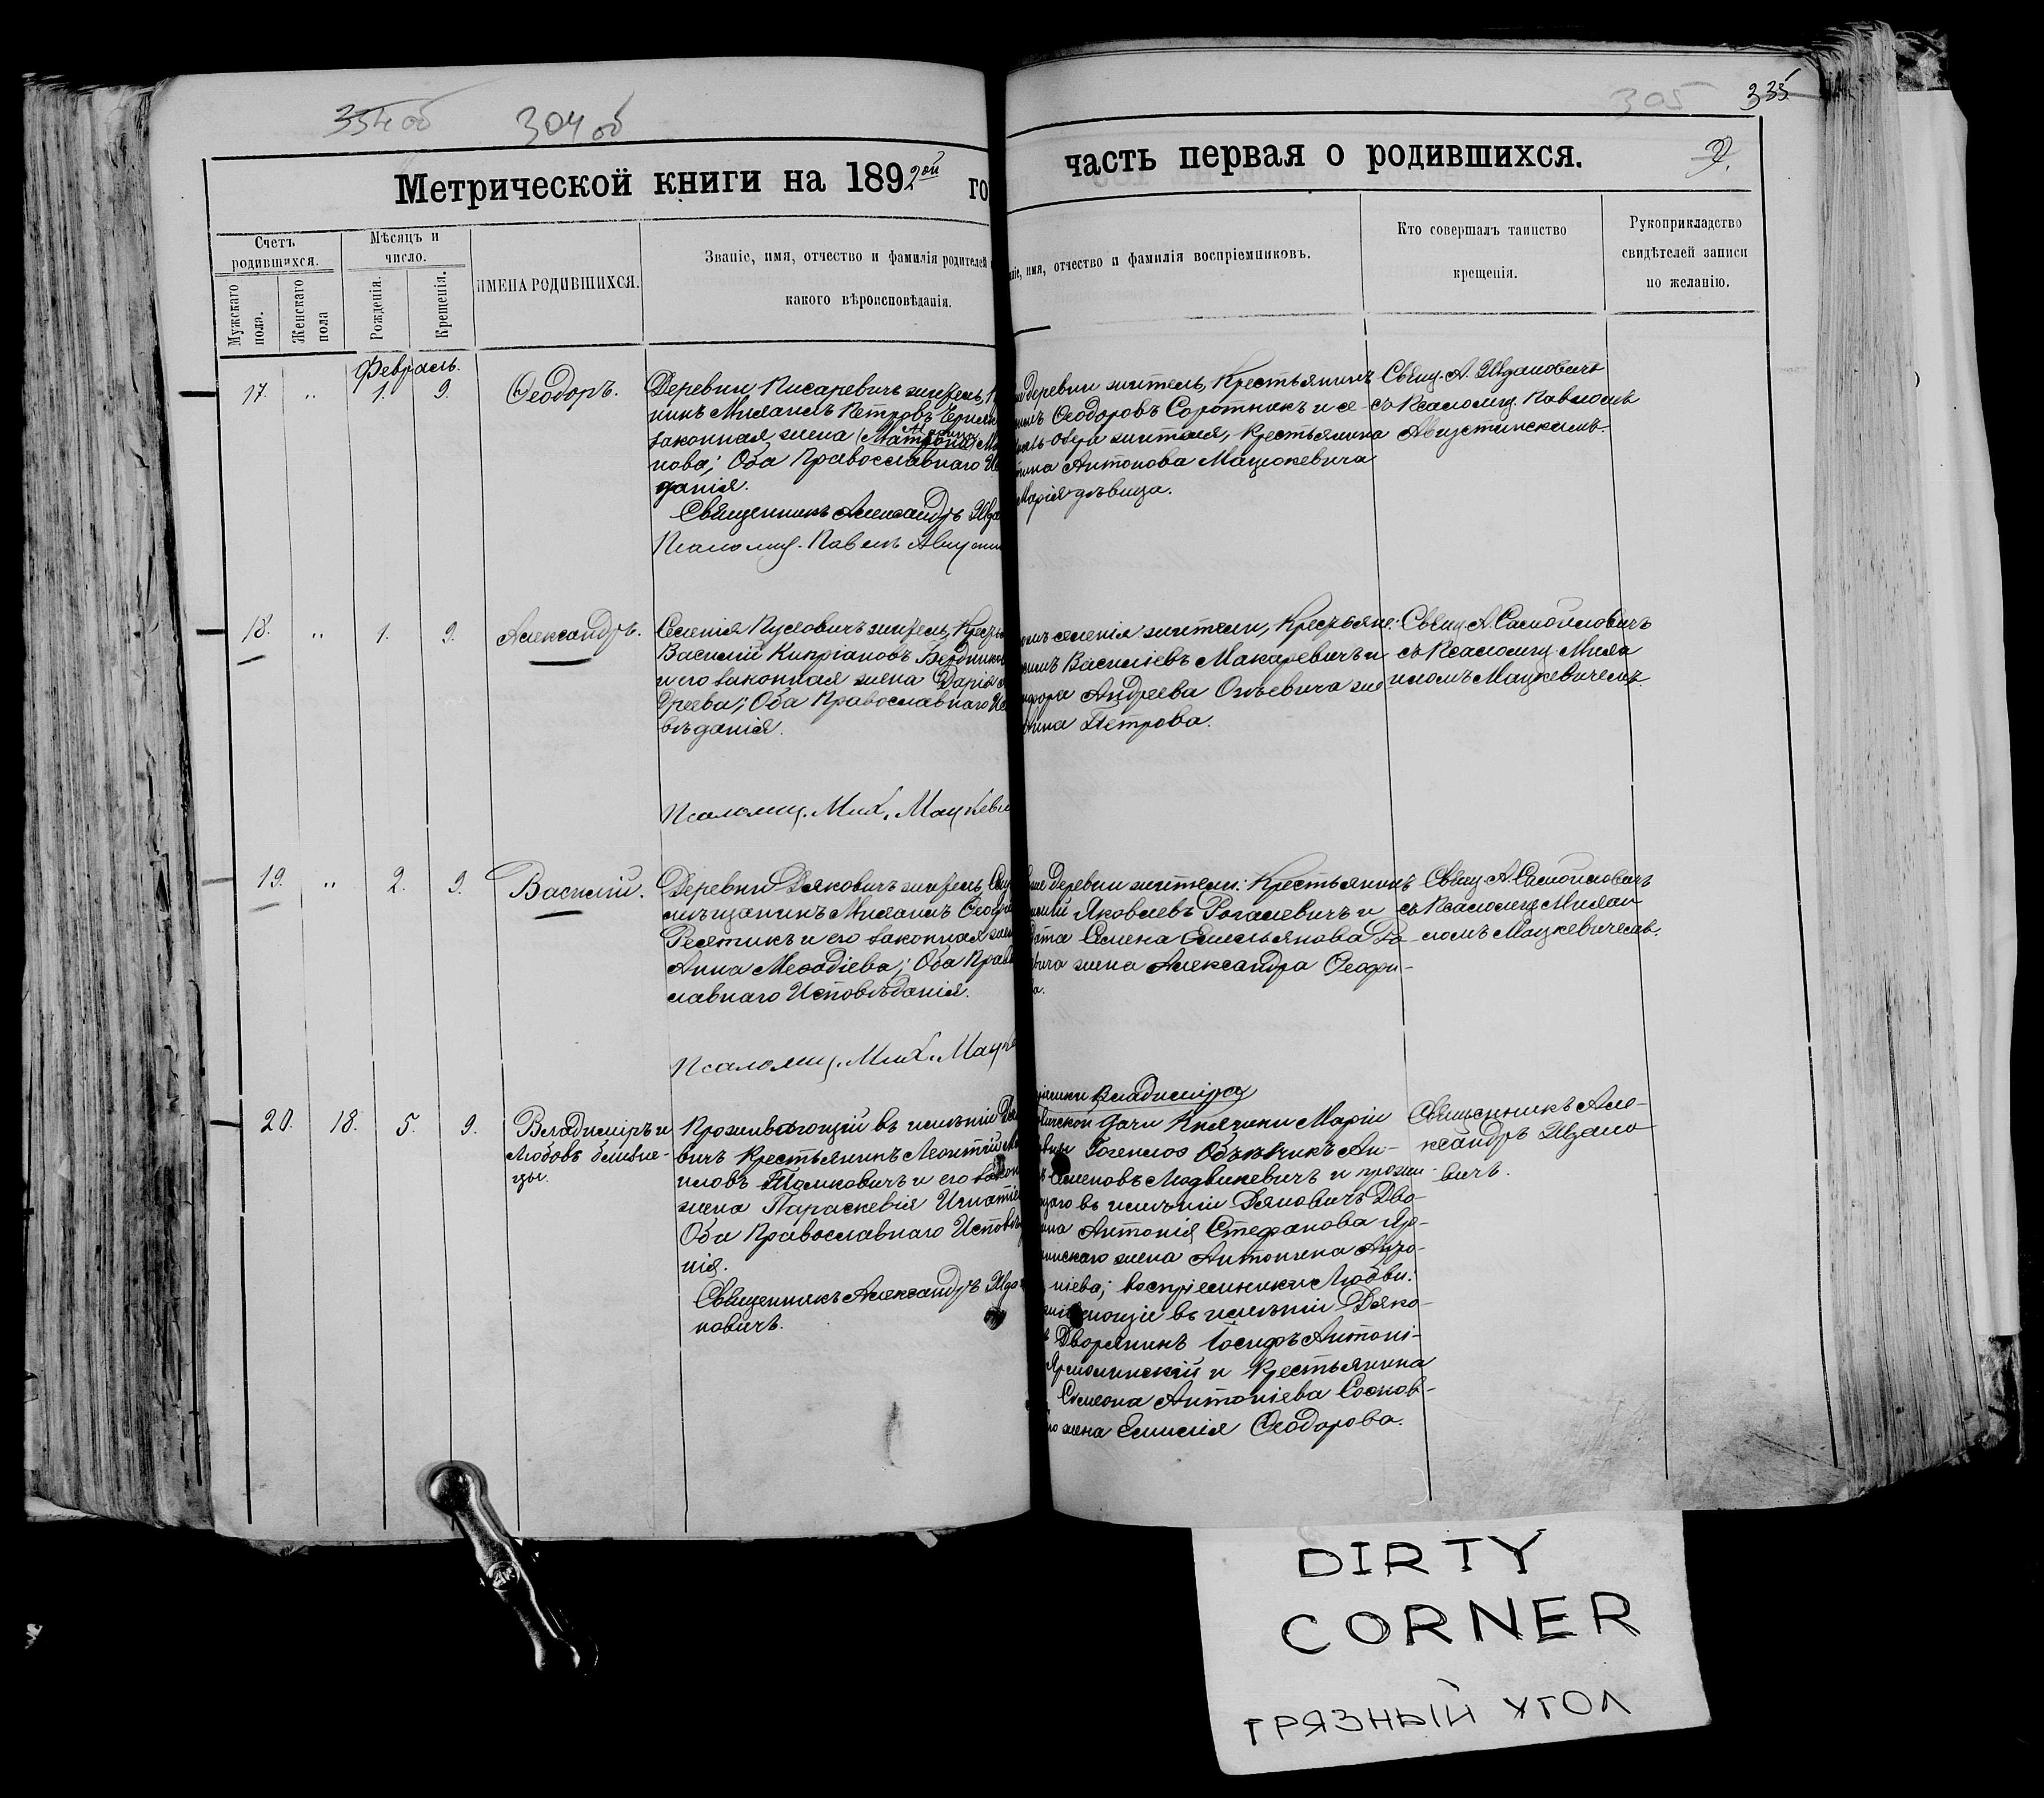 334 об 304 об
Метрической книги на 1892ой го
Счетъ родившихся.
Мѣсяцъ и число.
Мужскаго пола.
Женскаго пола
Рожденія.
Крещенія.
ИМЕНА РОДИВШИХСЯ.
Званіе, имя, отчество и фамилія родителей
какого вѣроисповѣданія.
Февраль.
17. " 1. 9. Ѳеодоръ.
Деревни Писаревичъ житель,
нинъ Михаилъ Петровъ
законная жена
нова; Оба Православнаго
данія.
Священникъ Александръ
Псаломщ. Павелъ Августин
18. " 1. 9. Александръ.
Селенія Пусловичъ житель, Крест
Василій Кипріановъ
и его законная жена Дарія
дреева; Оба Православнаго Ис
вѣданія.
Псаломщ. Мих. Мацкеви
19. " 2. 9. Василій.
Деревни Дяковичъ житель,
мѣщанинъ Михаилъ
и его законная жен
Анна Меѳодіева; Оба Право
славнаго Исповѣданія.
Псаломщ. Мих. Мацке
20. 18. 5. 9. Владиміръ и
Любовь близне-
цы.
Проживающій въ имѣніи Дя
вичъ Крестьянинъ Леонтій
иловъ и его закон
жена Параскевія Игнатіе
Оба Православнаго Исповѣд
нія.
Священникъ Александръ Жда
новичъ.
305 335
часть первая о родившихся.
ніе, имя, отчество и фамилія воспріемниковъ.
Кто совершалъ таинство
крещенія.
Рукоприкладство
свидѣтелей записи
по желанію.
деревни житель, Крестьянинъ
Ѳеодоровъ Соротникъ и се-
жителя, Крестьянина
Антонова Мацюкевича
Марія дѣвица.
Свящ. А. Ждановичъ
съ Псаломщ. Павломъ
Августинскимъ.
селенія жители, Крестьяне:
Василіевъ Макаревичъ и
Андреева жe
нина Петрова.
Свящ. А Самойловичъ
съ Псаломщ. Миха
иломъ Мацкевичемъ.
деревни жители: Крестьянинъ
Яковлевъ Рогалевичъ и
Семена Емельянова
вича жена Александра Ѳеодо-
ва.
Свящ. А. Самойловичъ
съ Псаломщ Михаи
ломъ Мацкевичемъ.
Владиміра
дачи Княгини Маріи
Гогенлоэ Объѣзчикъ Ан-
Семеновъ и прожи-
щаго въ имѣніи Дяковичъ Дво-
Антонія Стефанова Яр-
жена Антонина
ніева; воспріемники Любви:
въ имѣніи Дяко-
Дворянинъ Іосифъ Антоні-
Ярмолинскій и Крестьянина
Симеона Антоніева Соснов-
жена Ѳеодорова.
Священникъ Але-
ксандръ Ждано-
вичъ.
DIRTY
CORNER
ГРЯЗНЫЙ УГОЛ